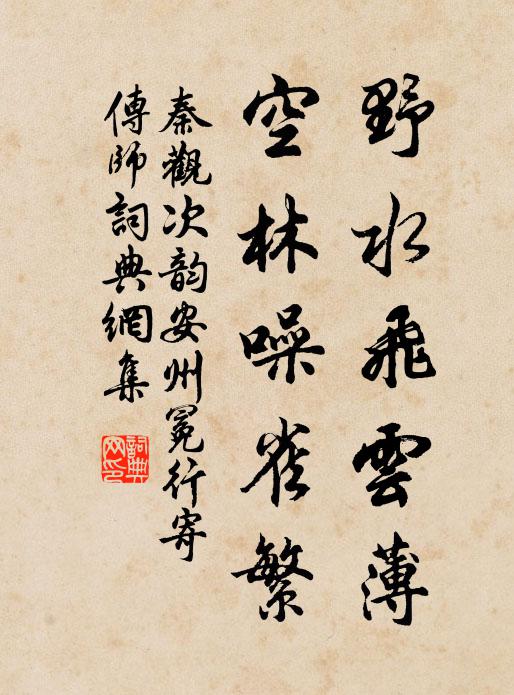 野水飛雲薄
空林噪雀繁
秦觀次韵安州晚行寄
傳師詞典網集
詞典
网印